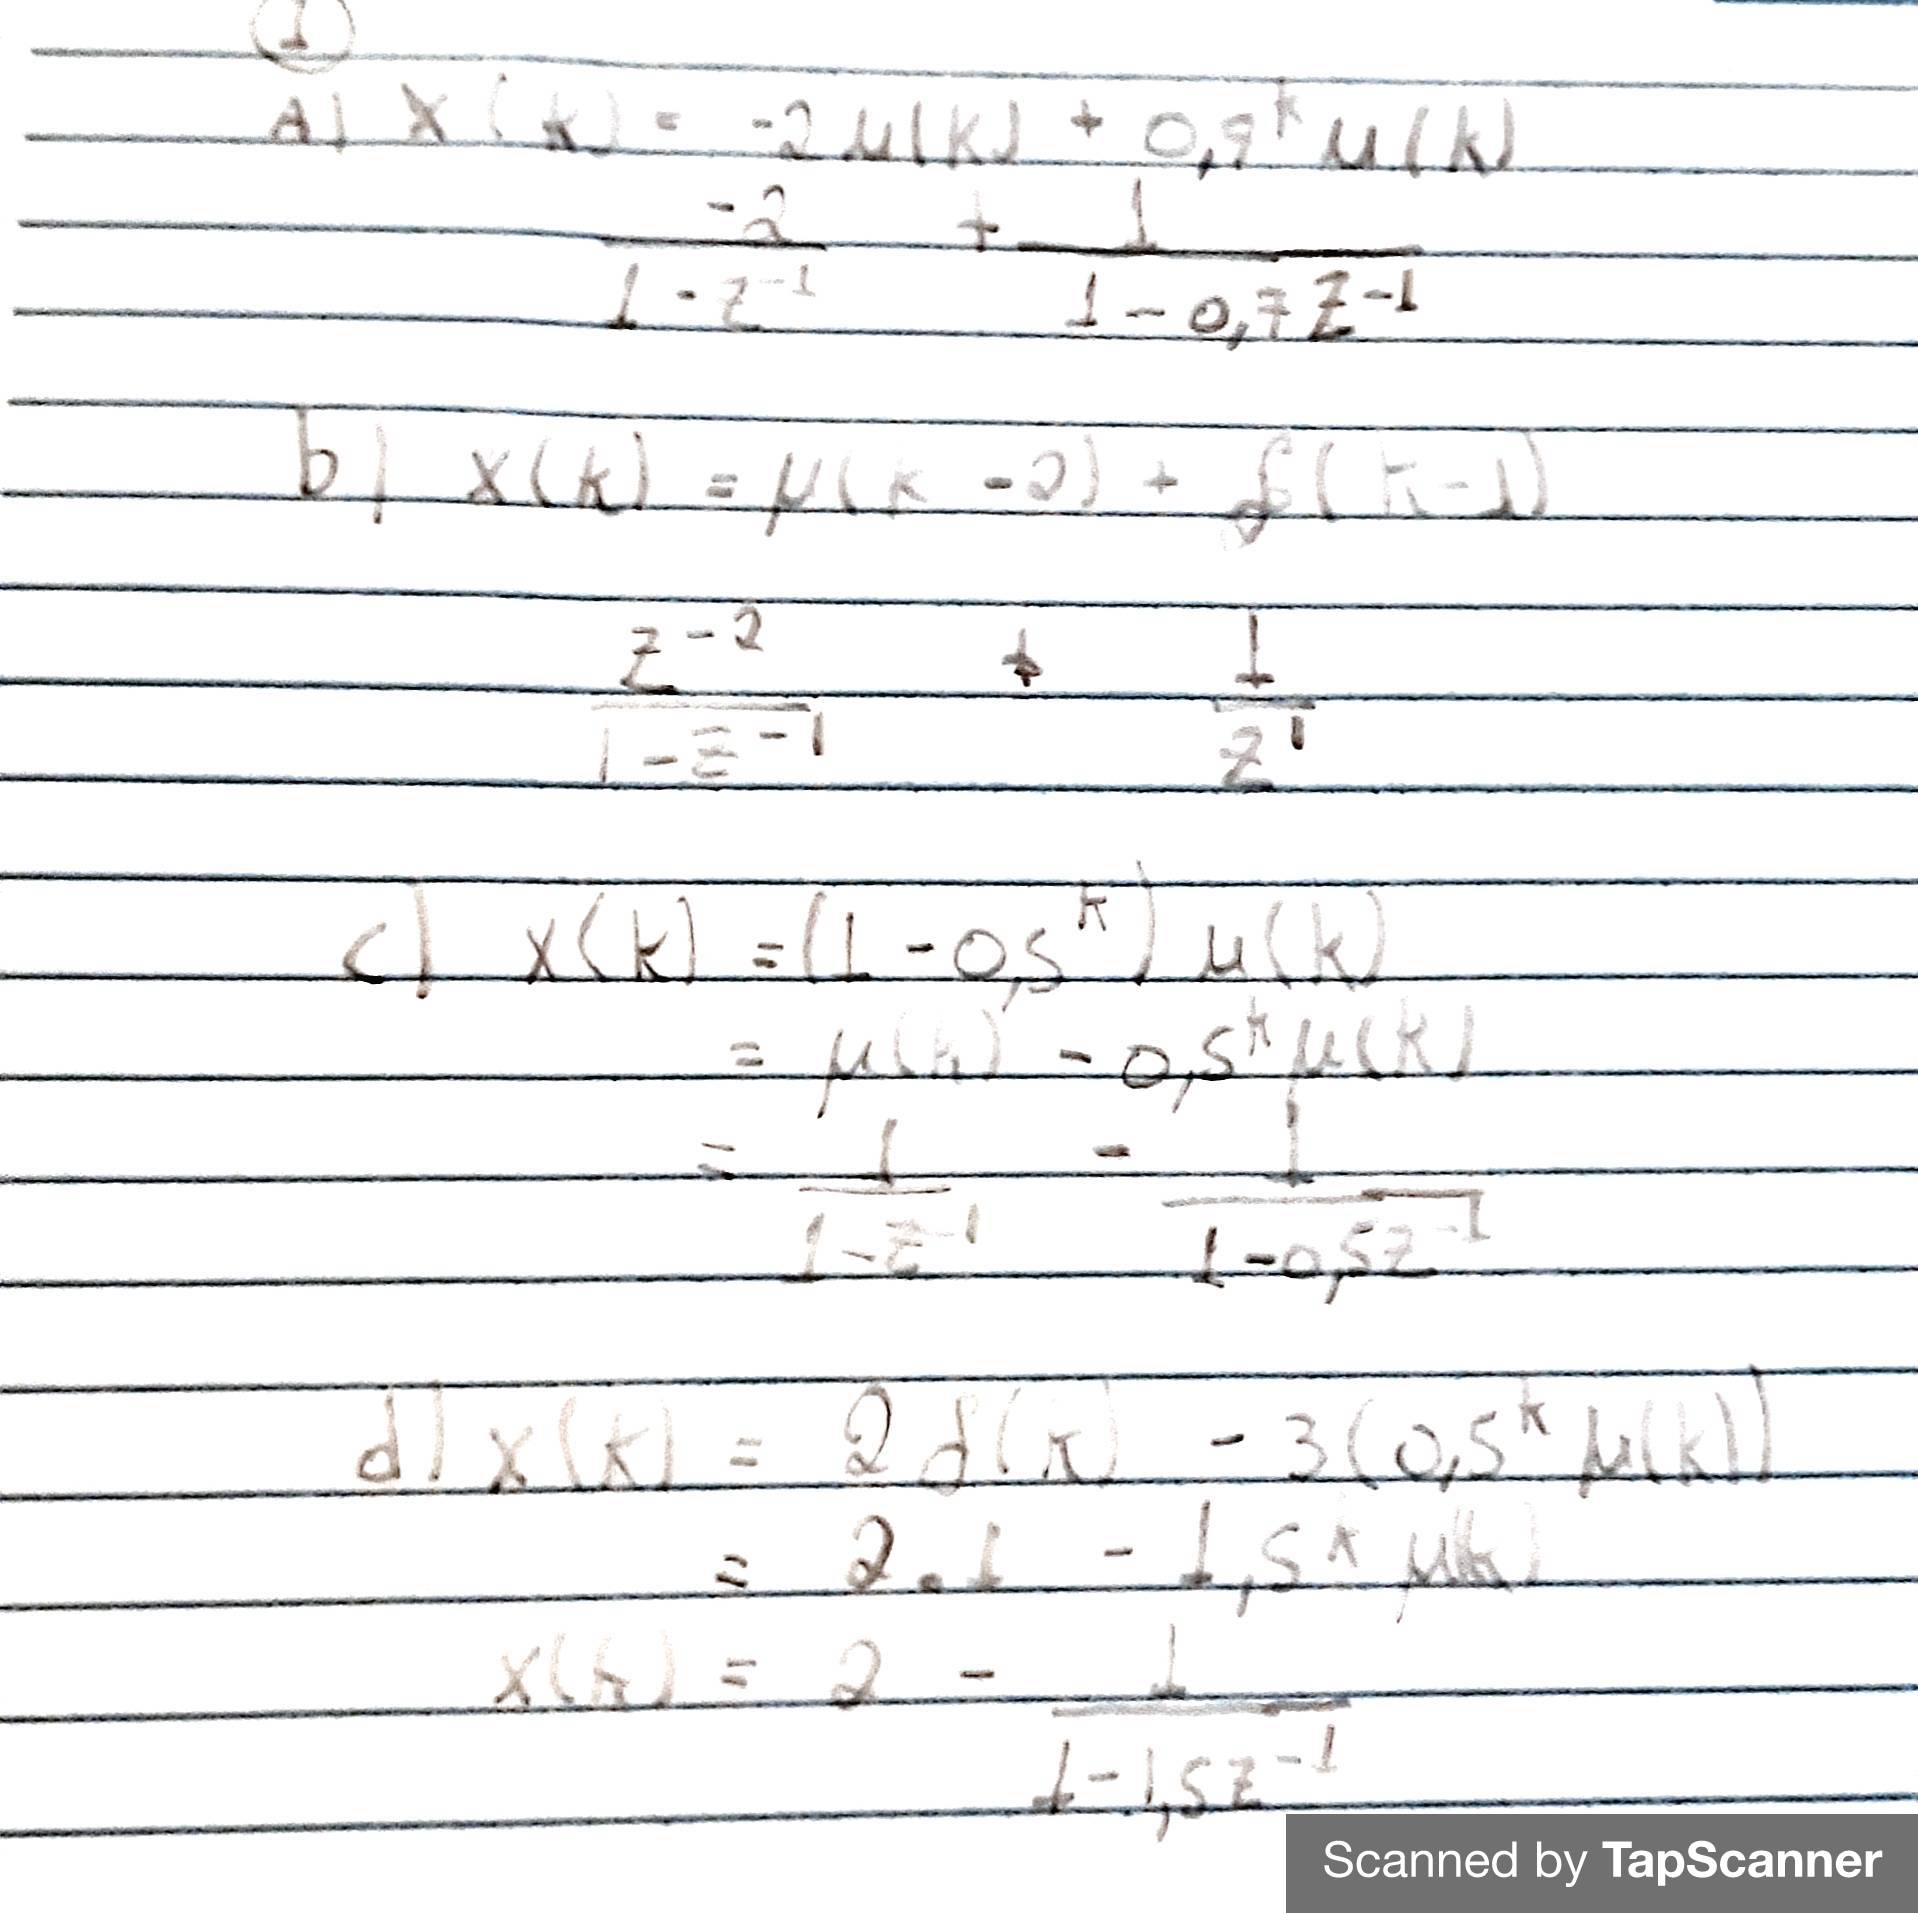 1
A) X(k) = -2μ(k) + 0,9^k μ(k)
-2 / (1 - z^-1) + 1 / (1 - 0,7 z^-1)
b) x(k) = μ(k - 2) + δ(k - 1)
z^-2 / (1 - z^-1) + 1 / z^1
c) x(k) = (1 - 0,5^k) μ(k)
= μ(k) - 0,5^k μ(k)
= 1 / (1 - z^-1) - 1 / (1 - 0,5z^-1)
d) x(k) = 2δ(k) - 3(0,5^k μ(k))
= 2.1 - 1,5^k μ(k)
x(k) = 2 - 1 / (1 - 1,5z^-1)
Scanned by TapScanner